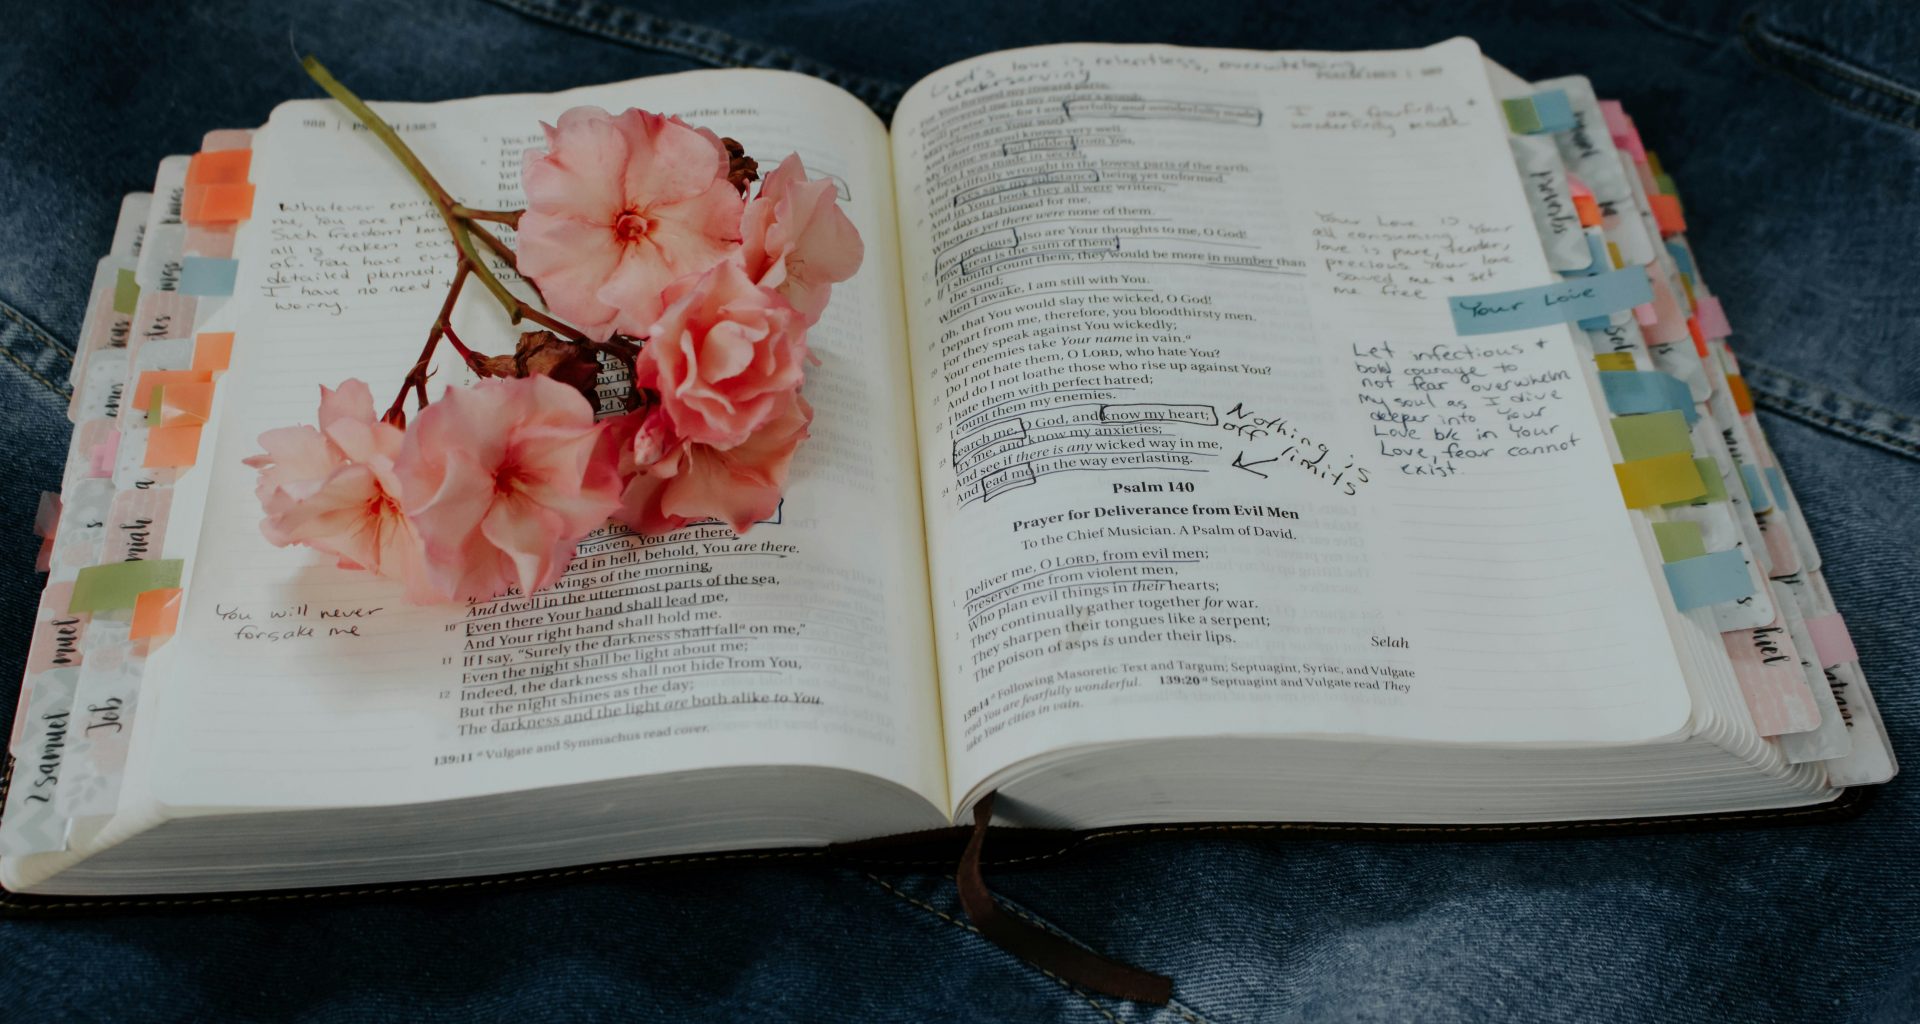 988 | PSALM 138:5
of the LORD,
Yes, the
For
Tho
Yet
But
Thou
Whatever concerns
me, You are perfe
Such freedom know
all is taken care
of. You have eve
detailed planned.
I have no need
worry.
my th
You will never
forsake me
ee fro
heaven, You are there;
bed in hell, behold, You are there.
wings of the morning,
And dwell in the uttermost parts of the sea,
10 Even there Your hand shall lead me,
And Your right hand shall hold me.
11 If I say, "Surely the darkness shall fall a on me,"
Even the night shall be light about me;
12 Indeed, the darkness shall not hide from You,
But the night shines as the day;
The darkness and the light are both alike to You.
139:11 a Vulgate and Symmachus read cover.
God's love is relentless, overwhelming
underserving
You formed my inward parts;
You covered me in my mother's womb.
I will praise You, for I am fearfully and wonderfully made;
Marvelous are Your works,
And that my soul knows very well.
My frame was not hidden from You,
When I was made in secret,
And skillfully wrought in the lowest parts of the earth.
Your eyes saw my substance, being yet unformed.
And in Your book they all were written,
The days fashioned for me,
When as yet there were none of them.
How precious also are Your thoughts to me, O God!
How great is the sum of them!
If I should count them, they would be more in number than
the sand;
When I awake, I am still with You.
Oh, that You would slay the wicked, O God!
Depart from me, therefore, you bloodthirsty men.
For they speak against You wickedly;
Your enemies take Your name in vain. a
Do I not hate them, O LORD, who hate You?
And do I not loathe those who rise up against You?
I hate them with perfect hatred;
I count them my enemies.
Search me, O God, and know my heart;
Try me, and know my anxieties;
And see if there is any wicked way in me,
24 And lead me in the way everlasting.
Nothing is
off limits
Psalm 140
Prayer for Deliverance from Evil Men
To the Chief Musician. A Psalm of David.
Deliver me, O LORD, from evil men;
Preserve me from violent men,
Who plan evil things in their hearts;
They continually gather together for war.
They sharpen their tongues like a serpent;
The poison of asps is under their lips.
Selah
139:14 a Following Masoretic Text and Targum; Septuagint, Syriac, and Vulgate
read You are fearfully wonderful. 139:20 a Septuagint and Vulgate read They
take Your cities in vain.
I am fearfully +
wonderfully made
Your Love is
all consuming. Your
love is pure, tender,
precious. Your love
saved me + set
me free
Your Love
Let infectious +
bold courage to
not fear overwhelm
my soul as I dive
deeper into Your
Love b/c in Your
Love, fear cannot
exist.
2 Samuel
Job
muel
miah
Proverbs